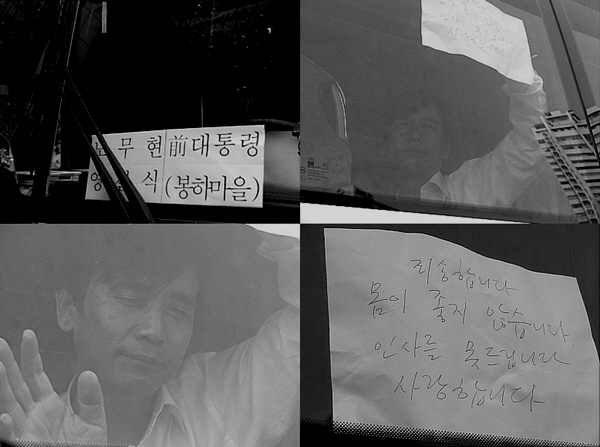 노무현 前 대통령
영결식 (봉하마을)
죄송합니다
몸이 좋지 않습니다
인사를 못드립니다
사랑합니다